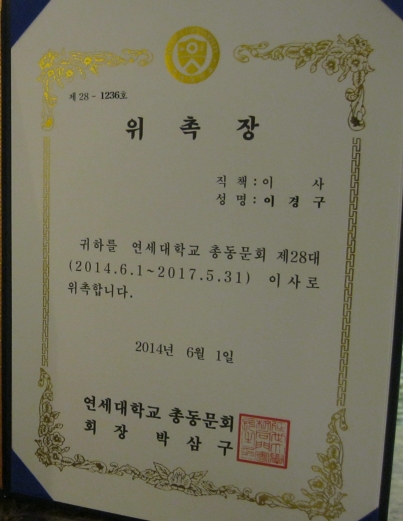 제 28 - 1236호
위 촉 장
직 책 : 이 사
성 명 : 이 경 구
귀하를 연세대학교 총동문회 제28대
(2014.6.1~2017.5.31) 이사로
위촉합니다.
2014년 6월 1일
연세대학교 총동문회
회 장 박 삼 구